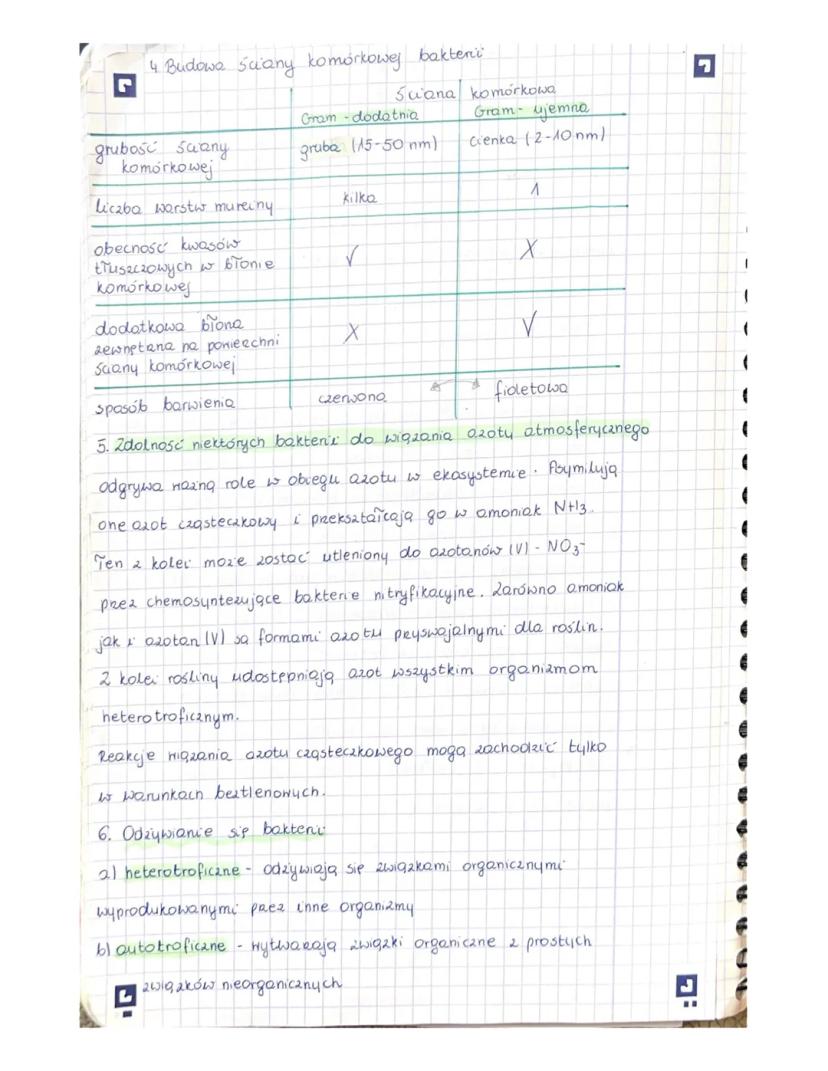 4. Budowa ściany komórkowej bakterii
Ściana komórkowa
Gram-dodatnia Gram-ujemna
grubość ściany komórkowej gruba (15-50 nm) cienka (2-10 nm)
liczba warstw mureiny kilka 1
obecność kwasów
tłuszczowych w błonie
komórkowej √ X
dodatkowa błona
zewnętrzna na powierzchni
ściany komórkowej X √
sposób barwienia czerwona fioletowa
5. Zdolność niektórych bakterii do wiązania azotu atmosferycznego
odgrywa ważną role w obiegu azotu w ekosystemie. Asymilują
one azot cząsteczkowy i przekształcają go w amoniak NH3.
Ten z kolei może zostać utleniony do azotanów (V) - NO3-
przez chemosyntezujące bakterie nitryfikacyjne. Zarówno amoniak
jak i azotan (V) są formami azotu przyswajalnymi dla roślin.
Z kolei rośliny udostępniają azot wszystkim organizmom
heterotroficznym.
Reakcje wiązania azotu cząsteczkowego mogą zachodzić tylko
w warunkach beztlenowych.
6. Odżywianie się bakterii
a) heterotroficzne - odżywiają się związkami organicznymi
wyprodukowanymi przez inne organizmy
b) autotroficzne - wytwarzają związki organiczne z prostych
związków nieorganicznych